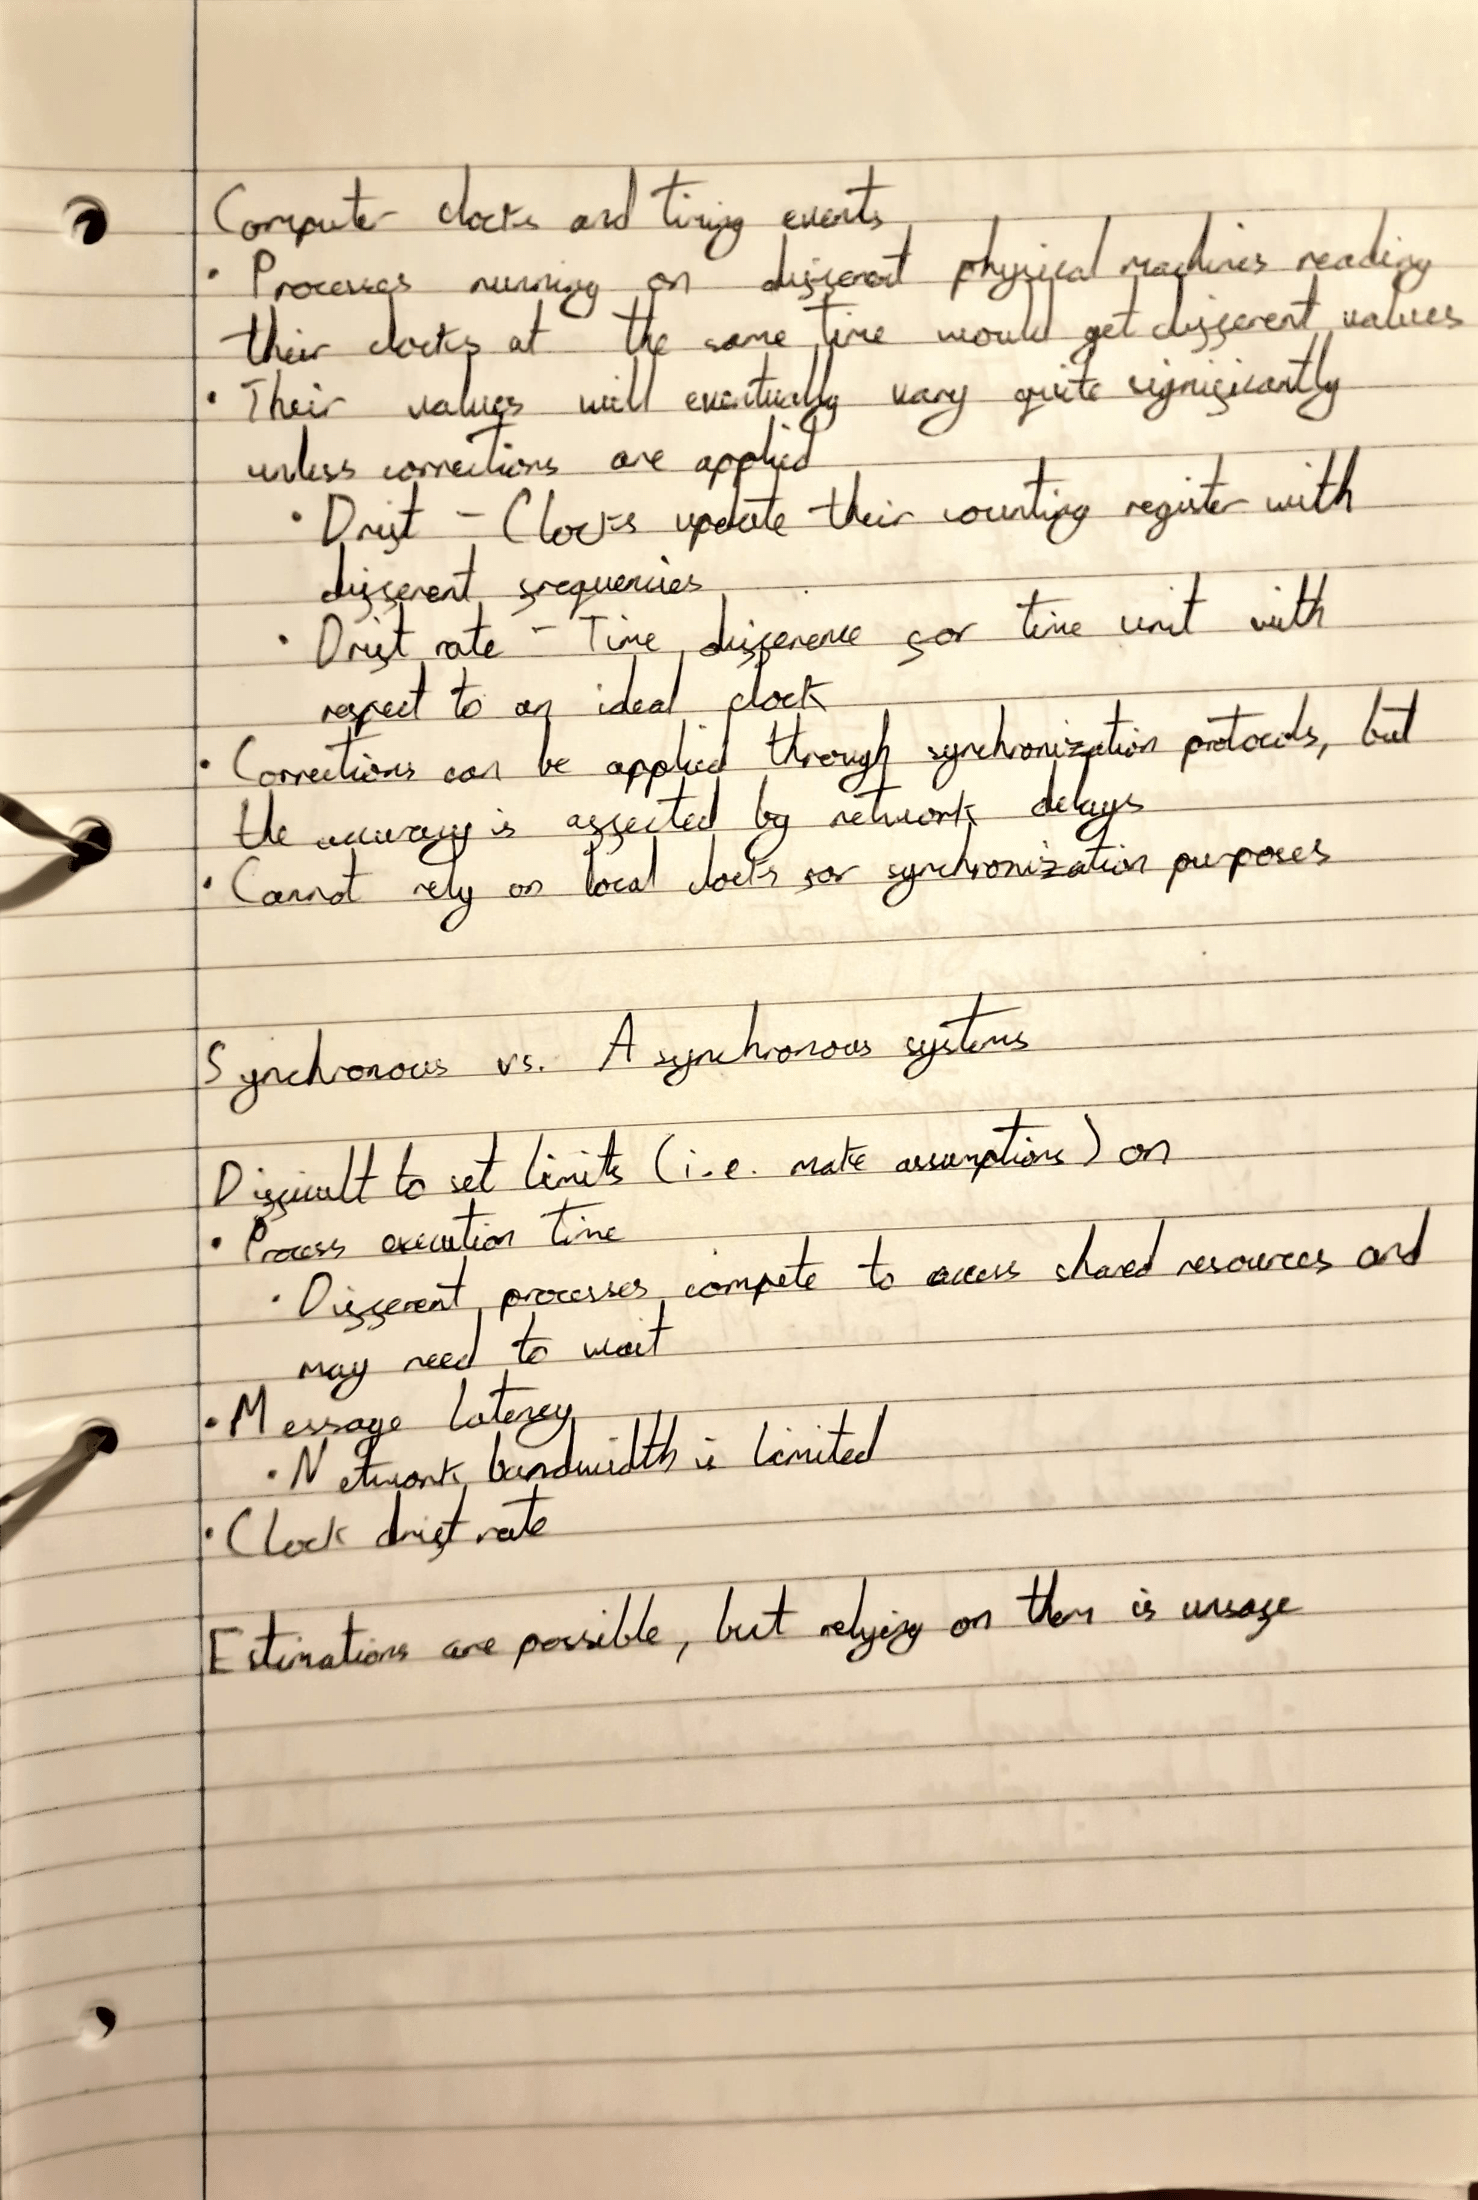 Computer clocks and timing events
• Processes running on different physical machines reading
their clocks at the same time would get different values
• Their values will eventually vary quite significantly
unless corrections are applied
• Drift - Clocks update their counting register with
different frequencies
• Drift rate - Time difference for time unit with
respect to an ideal clock
• Corrections can be applied through synchronization protocols, but
the accuracy is affected by network delays
• Cannot rely on local clocks for synchronization purposes
Synchronous vs. Asynchronous systems
Difficult to set limits (i.e. make assumptions) on
• Process execution time
• Different processes compete to access shared resources and
may need to wait
• Message latency
• Network bandwidth is limited
• Clock drift rate
Estimations are possible, but relying on them is unsafe